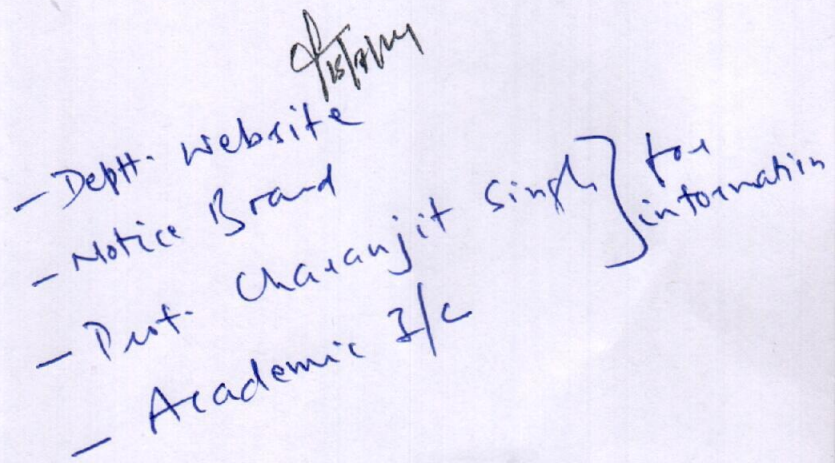 - Deptt. website
- Notice Board
- Prof. Charanjit Singh } for information
- Academic I/c